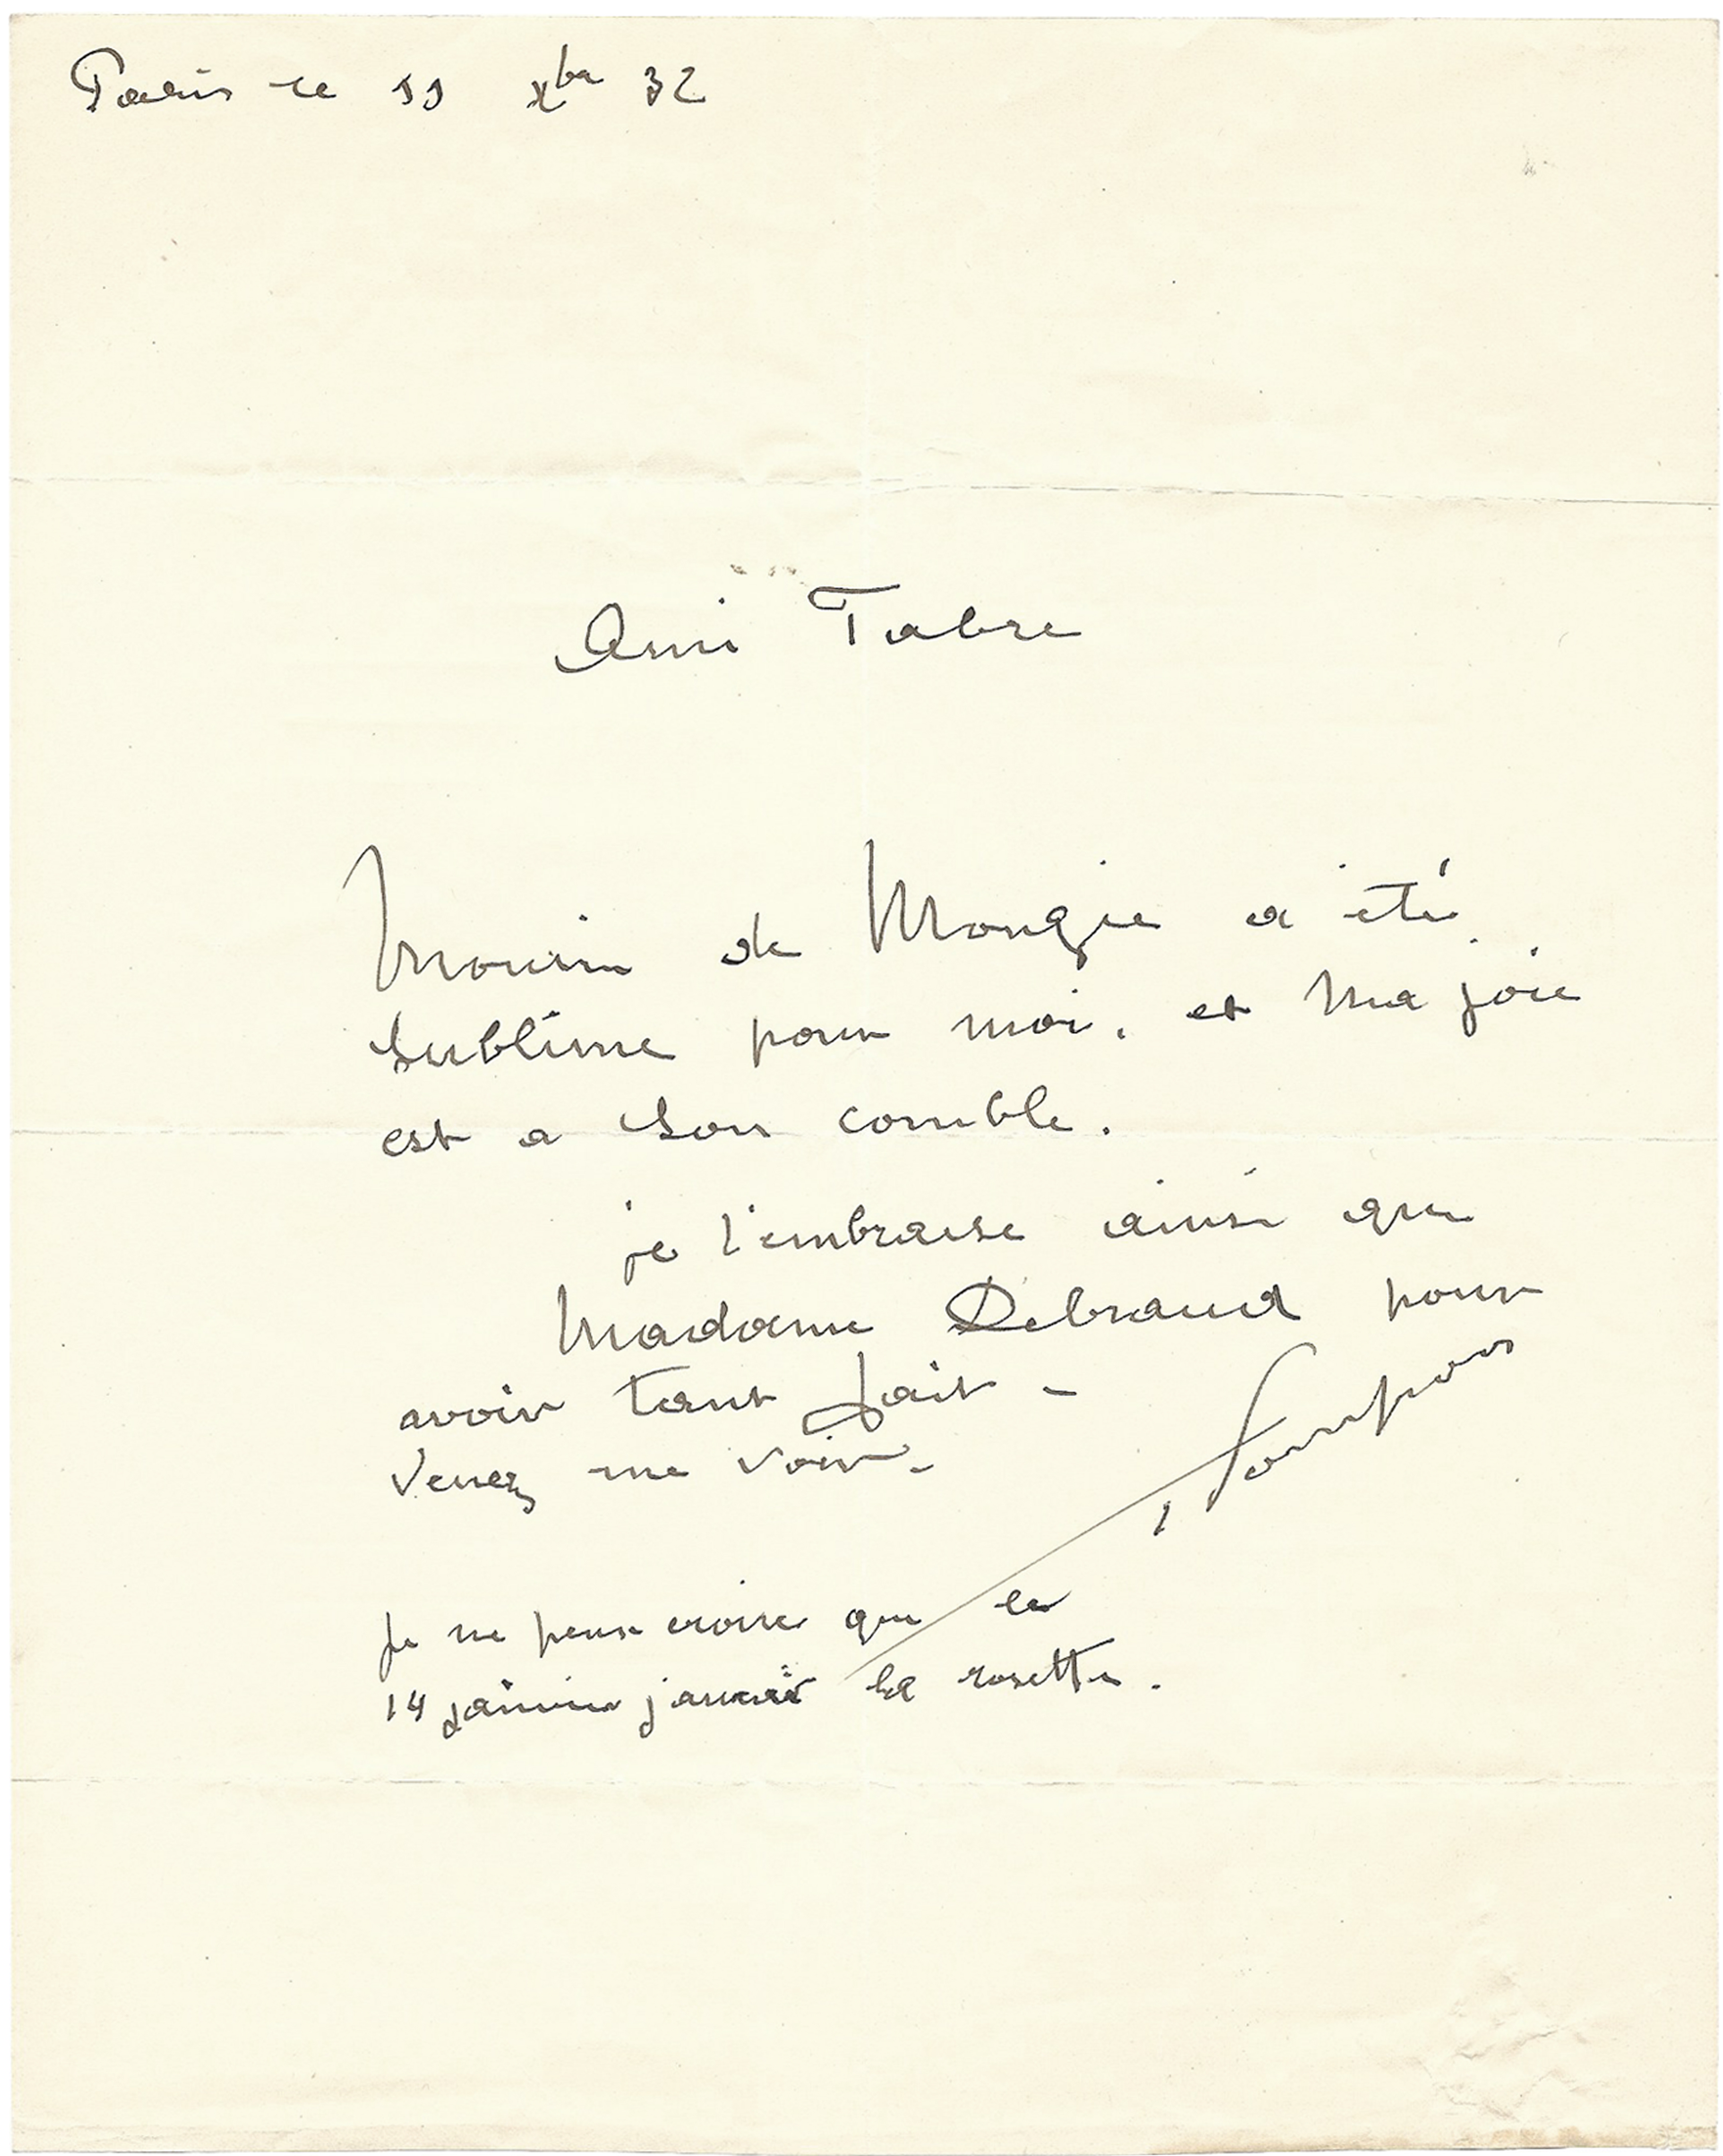 Paris le 11 Xbre 32
Ami Fabre
Monsieur de Monzie a été
sublime pour moi. et ma joie
est a son comble.
je l'embrasse ainsi que
Madame Debraud pour
avoir tant fait -
Venez me voir -
Pompon
je ne peux croire que le
14 janvier j'aurai la rosette.